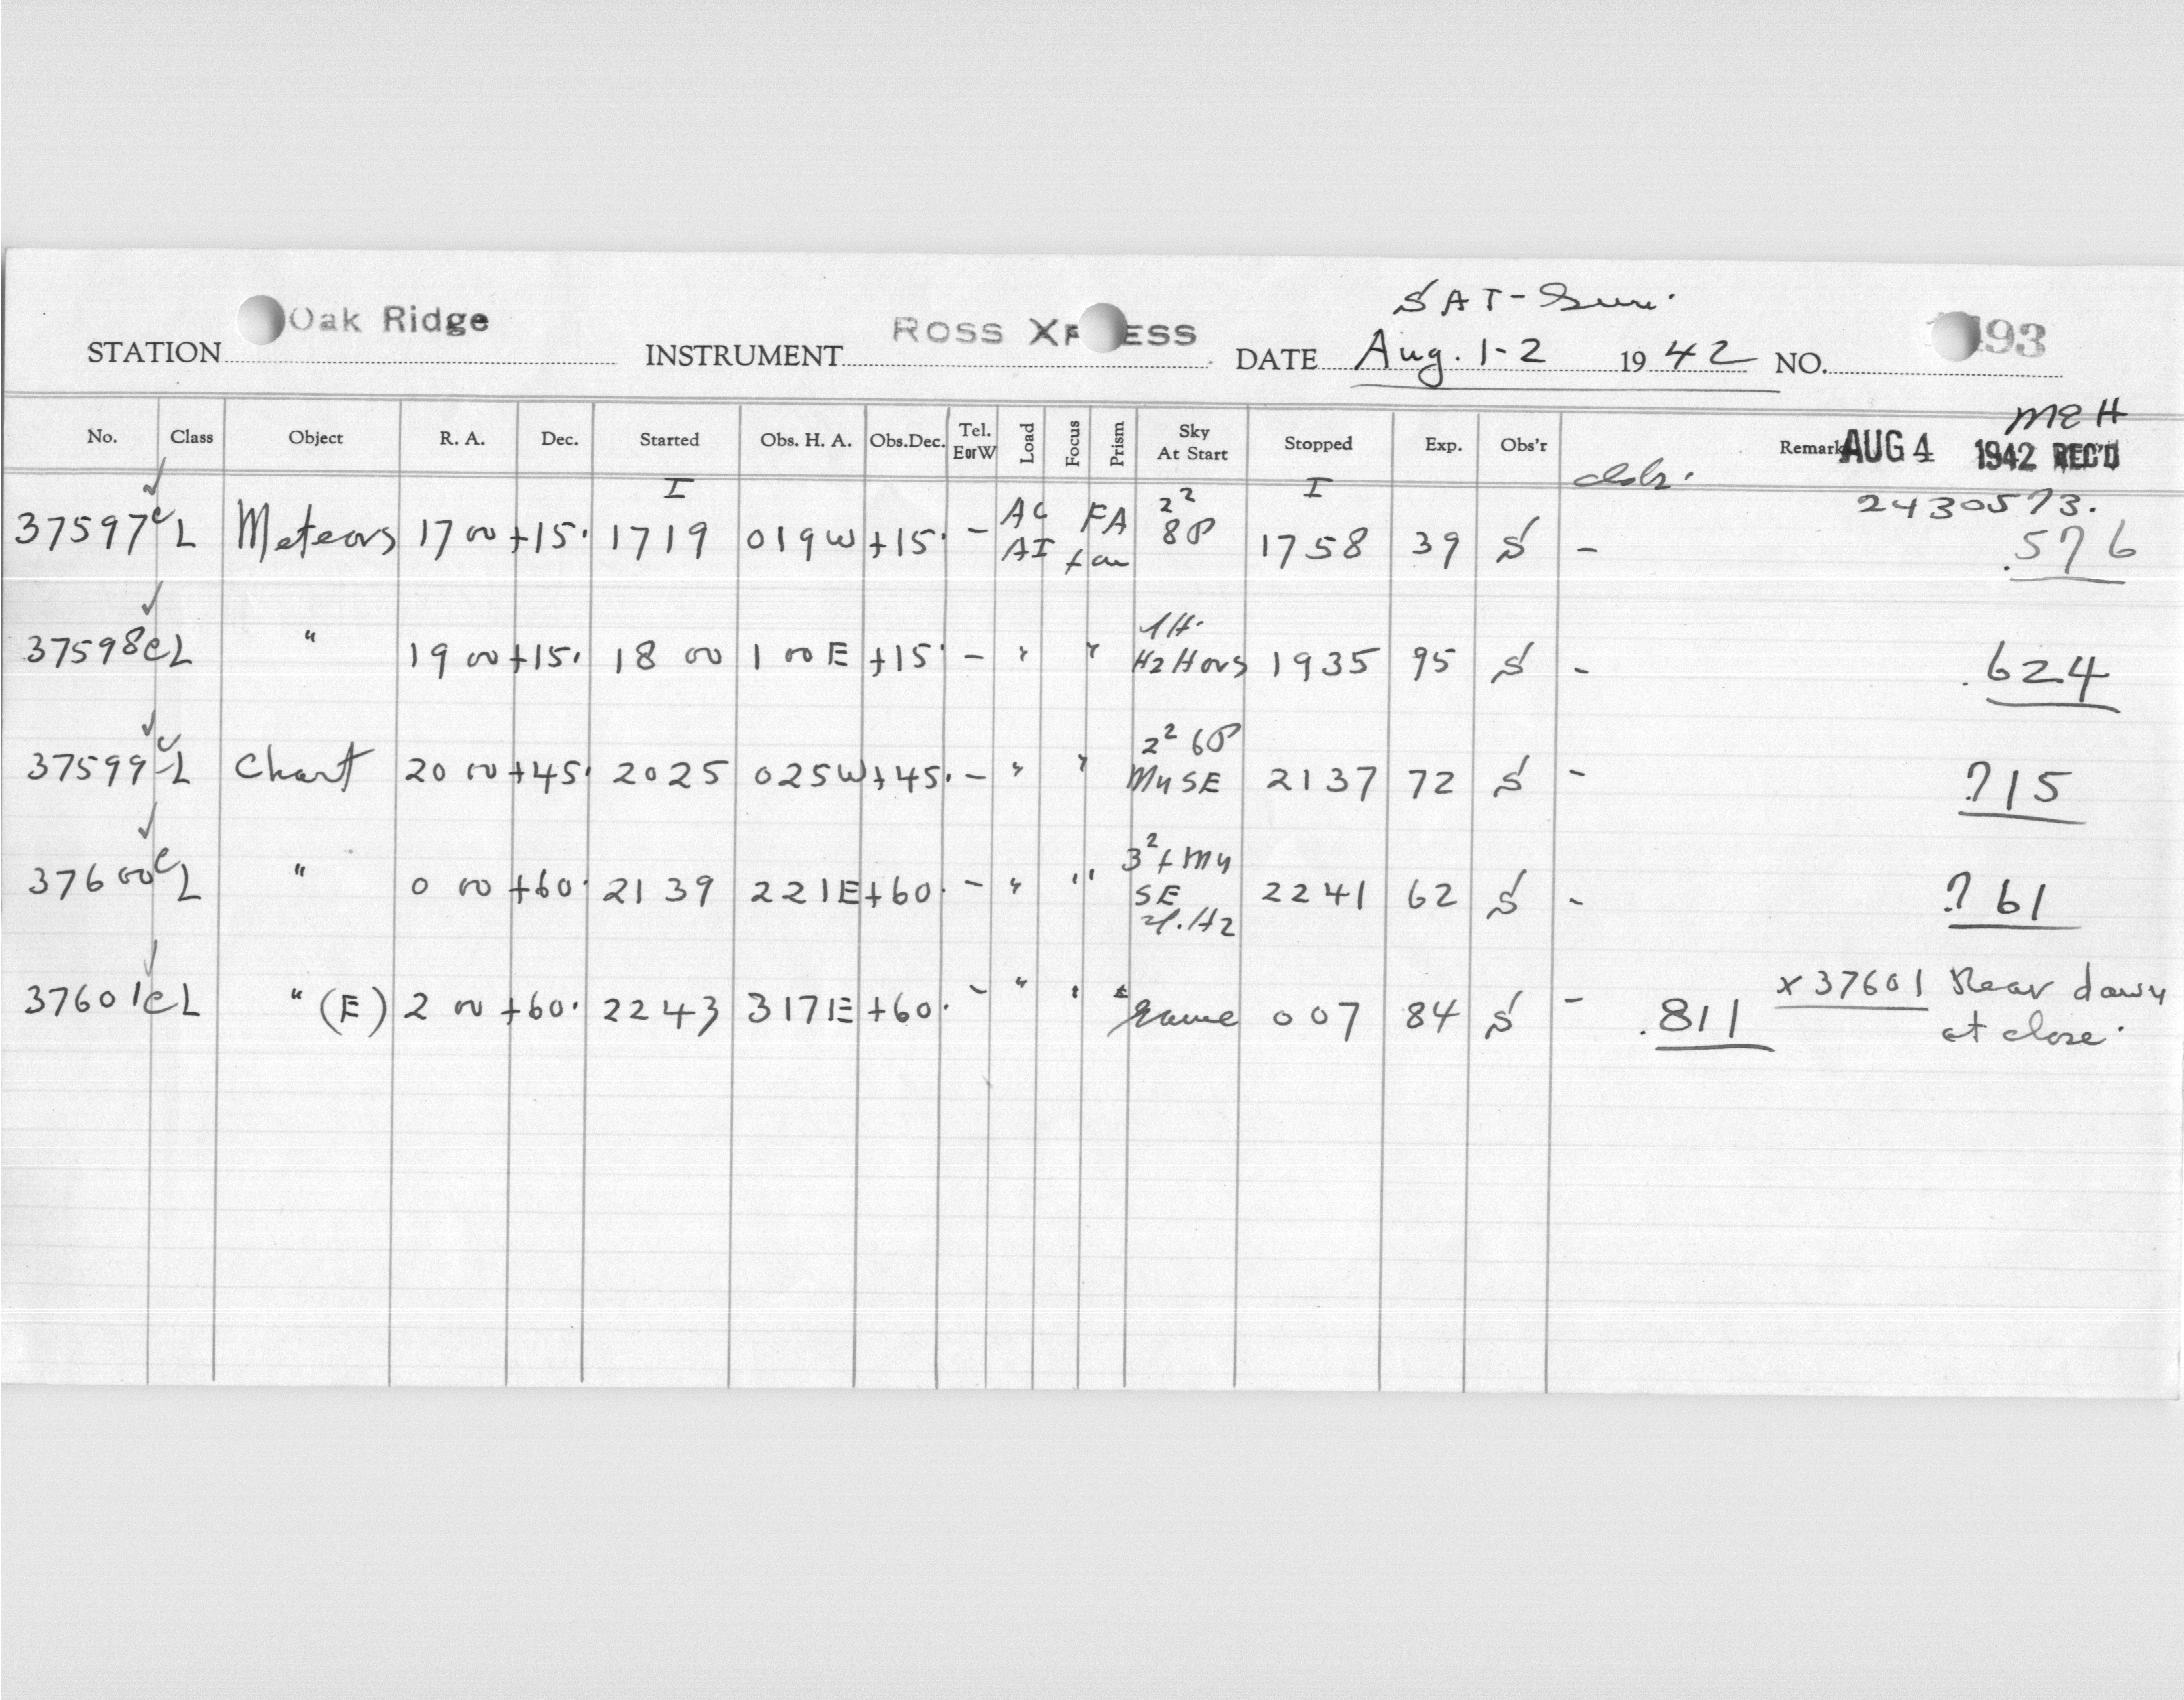 SAT-Sun.
STATION Oak Ridge INSTRUMENT ROSS XP ESS DATE Aug. 1-2 1942 NO. 493
MEH
No. Class Object R. A. Dec. Started Obs. H. A. Obs.Dec. Tel. EorW Load Focus Prism Sky At Start Stopped Exp. Obs'r Remark AUG 4 1942 REC'D
I I 2430573.
37597 CL Meteors 17 00 +15. 1719 019W +15. - AC AI FA 2² 8P 1758 39 S - .576
37598 CL " 19 00 +15. 18 00 1 00 E +15. - " " HzHors 1935 95 S - .624
37599 CL Chart 20 00 +45. 2025 025W +45. - " " 2² 6P My SE 2137 72 S - .715
37600 CL " 0 00 +60. 2139 221E +60. - " " 3² + My SE Hz 2241 62 S - .761
37601 CL " (E) 2 00 +60. 2243 317E +60. - " " " same 007 84 S - .811 x 37601 Near dawn
at close.